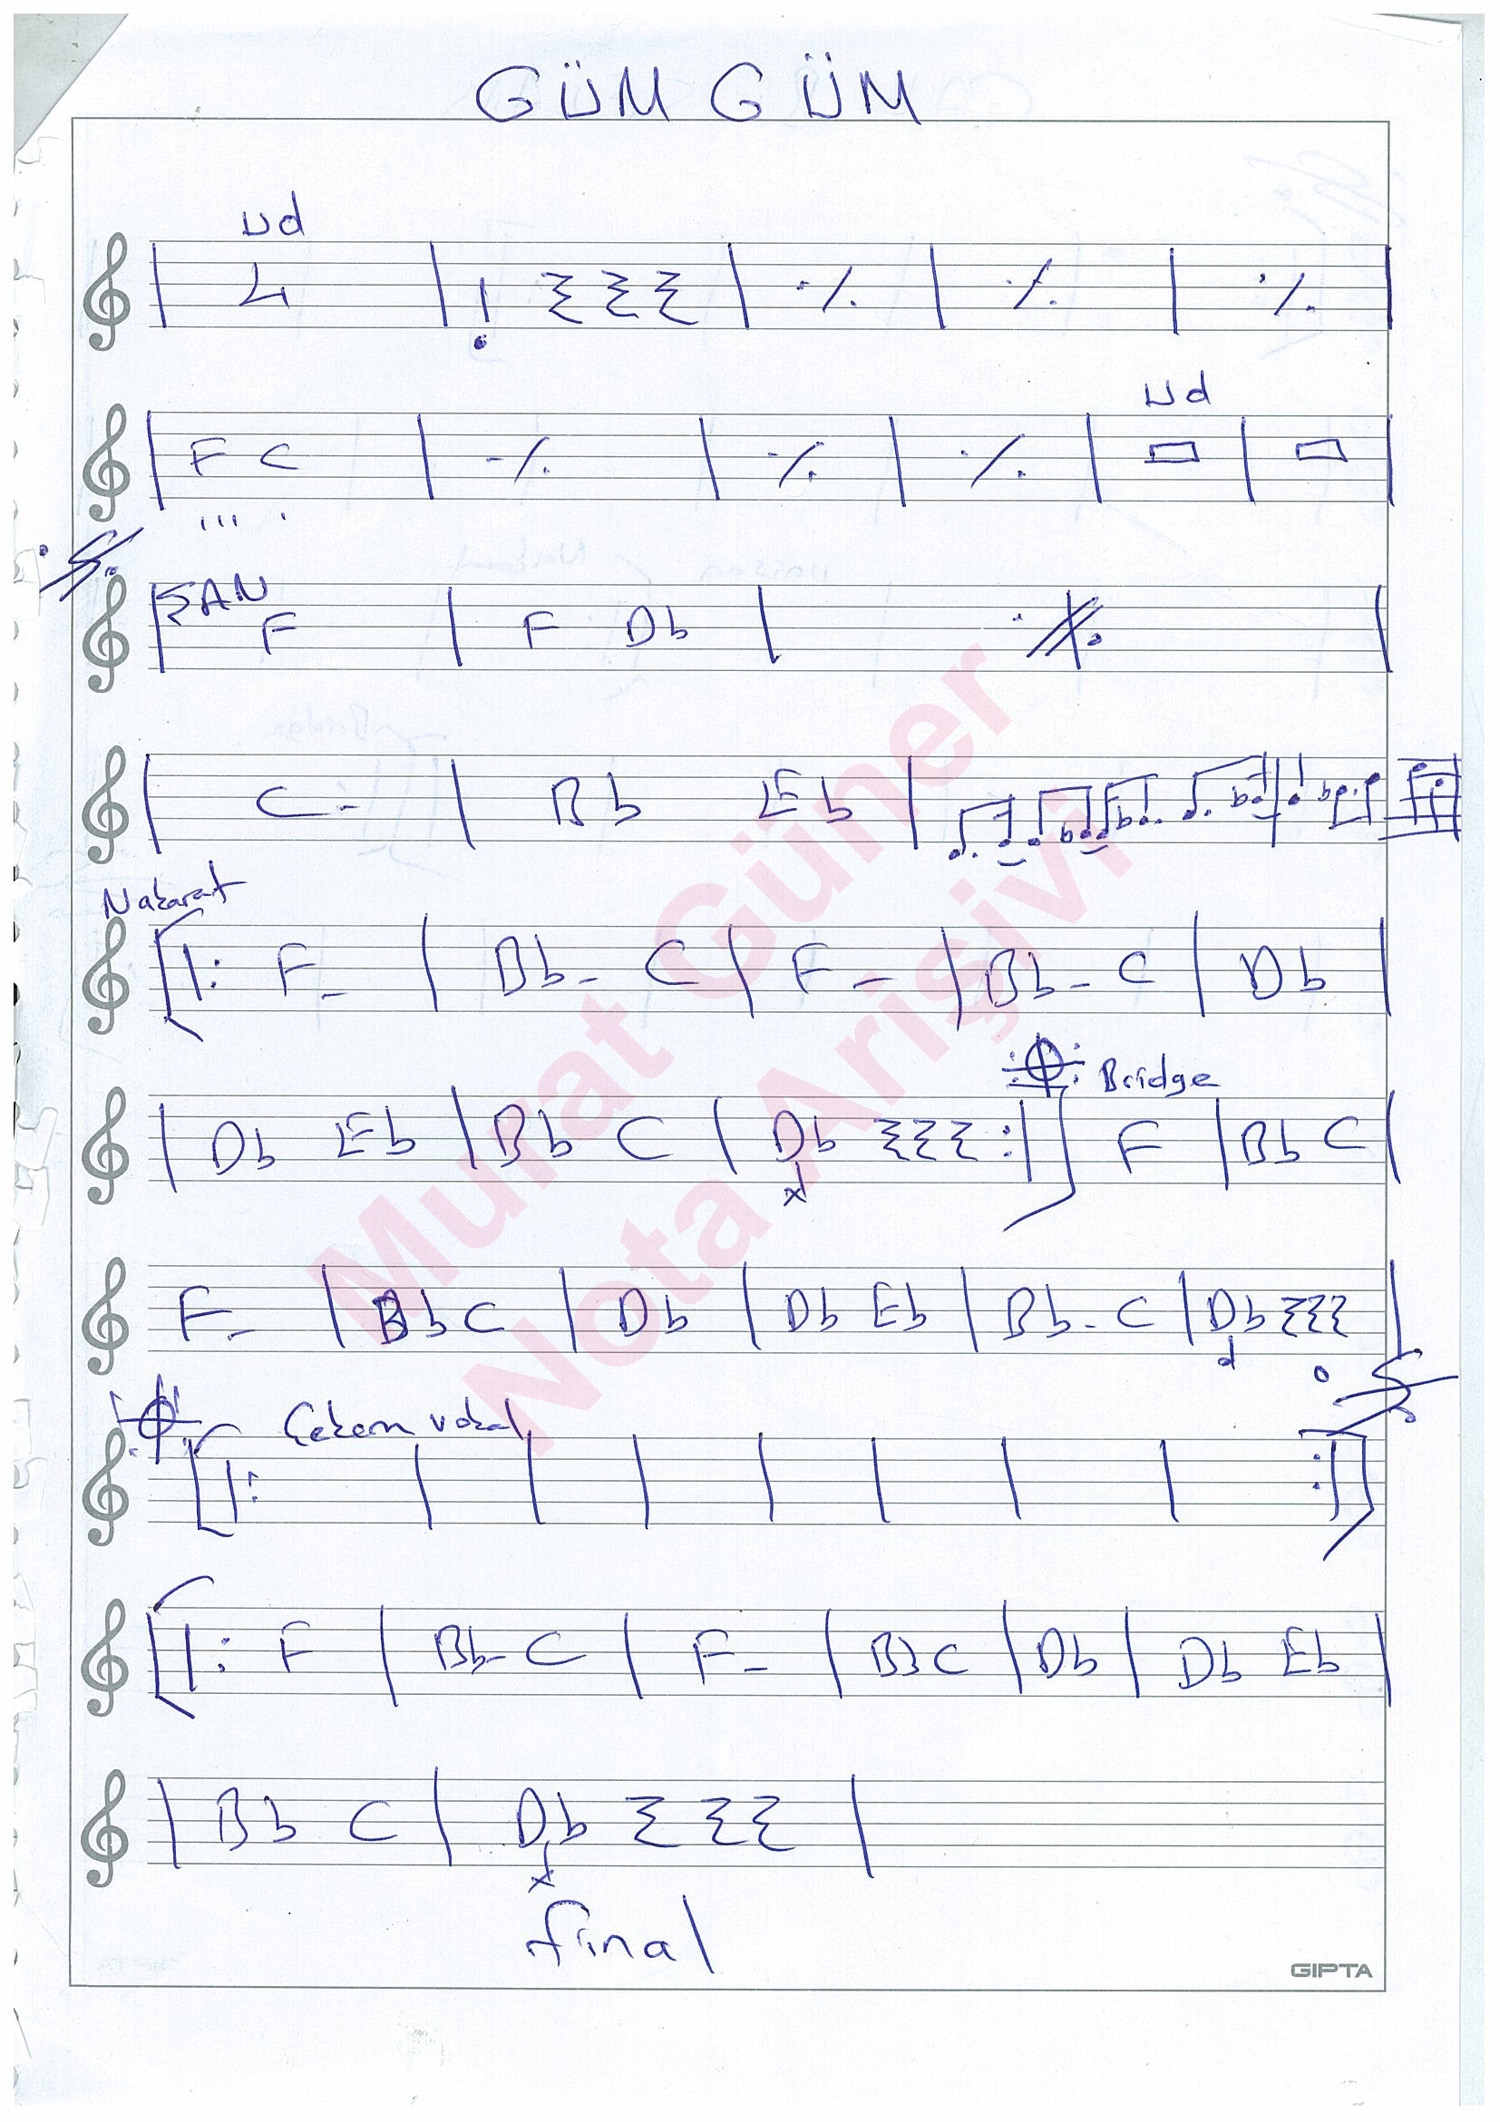 GÜM GÜM
Ud
Ud
F C
ŞAN
F F Db
C- Bb Eb
Nakarat
F- Bb- C F- Bb- C Db
Bridge
Db Eb Bb C Db F Bb C
F- Bb C Db Db Eb Bb- C Db
vokal
F Bb- C F- Bb C Db Db Eb
Bb C Db
final
GIPTA
Murat Güner
Nota Arişivi